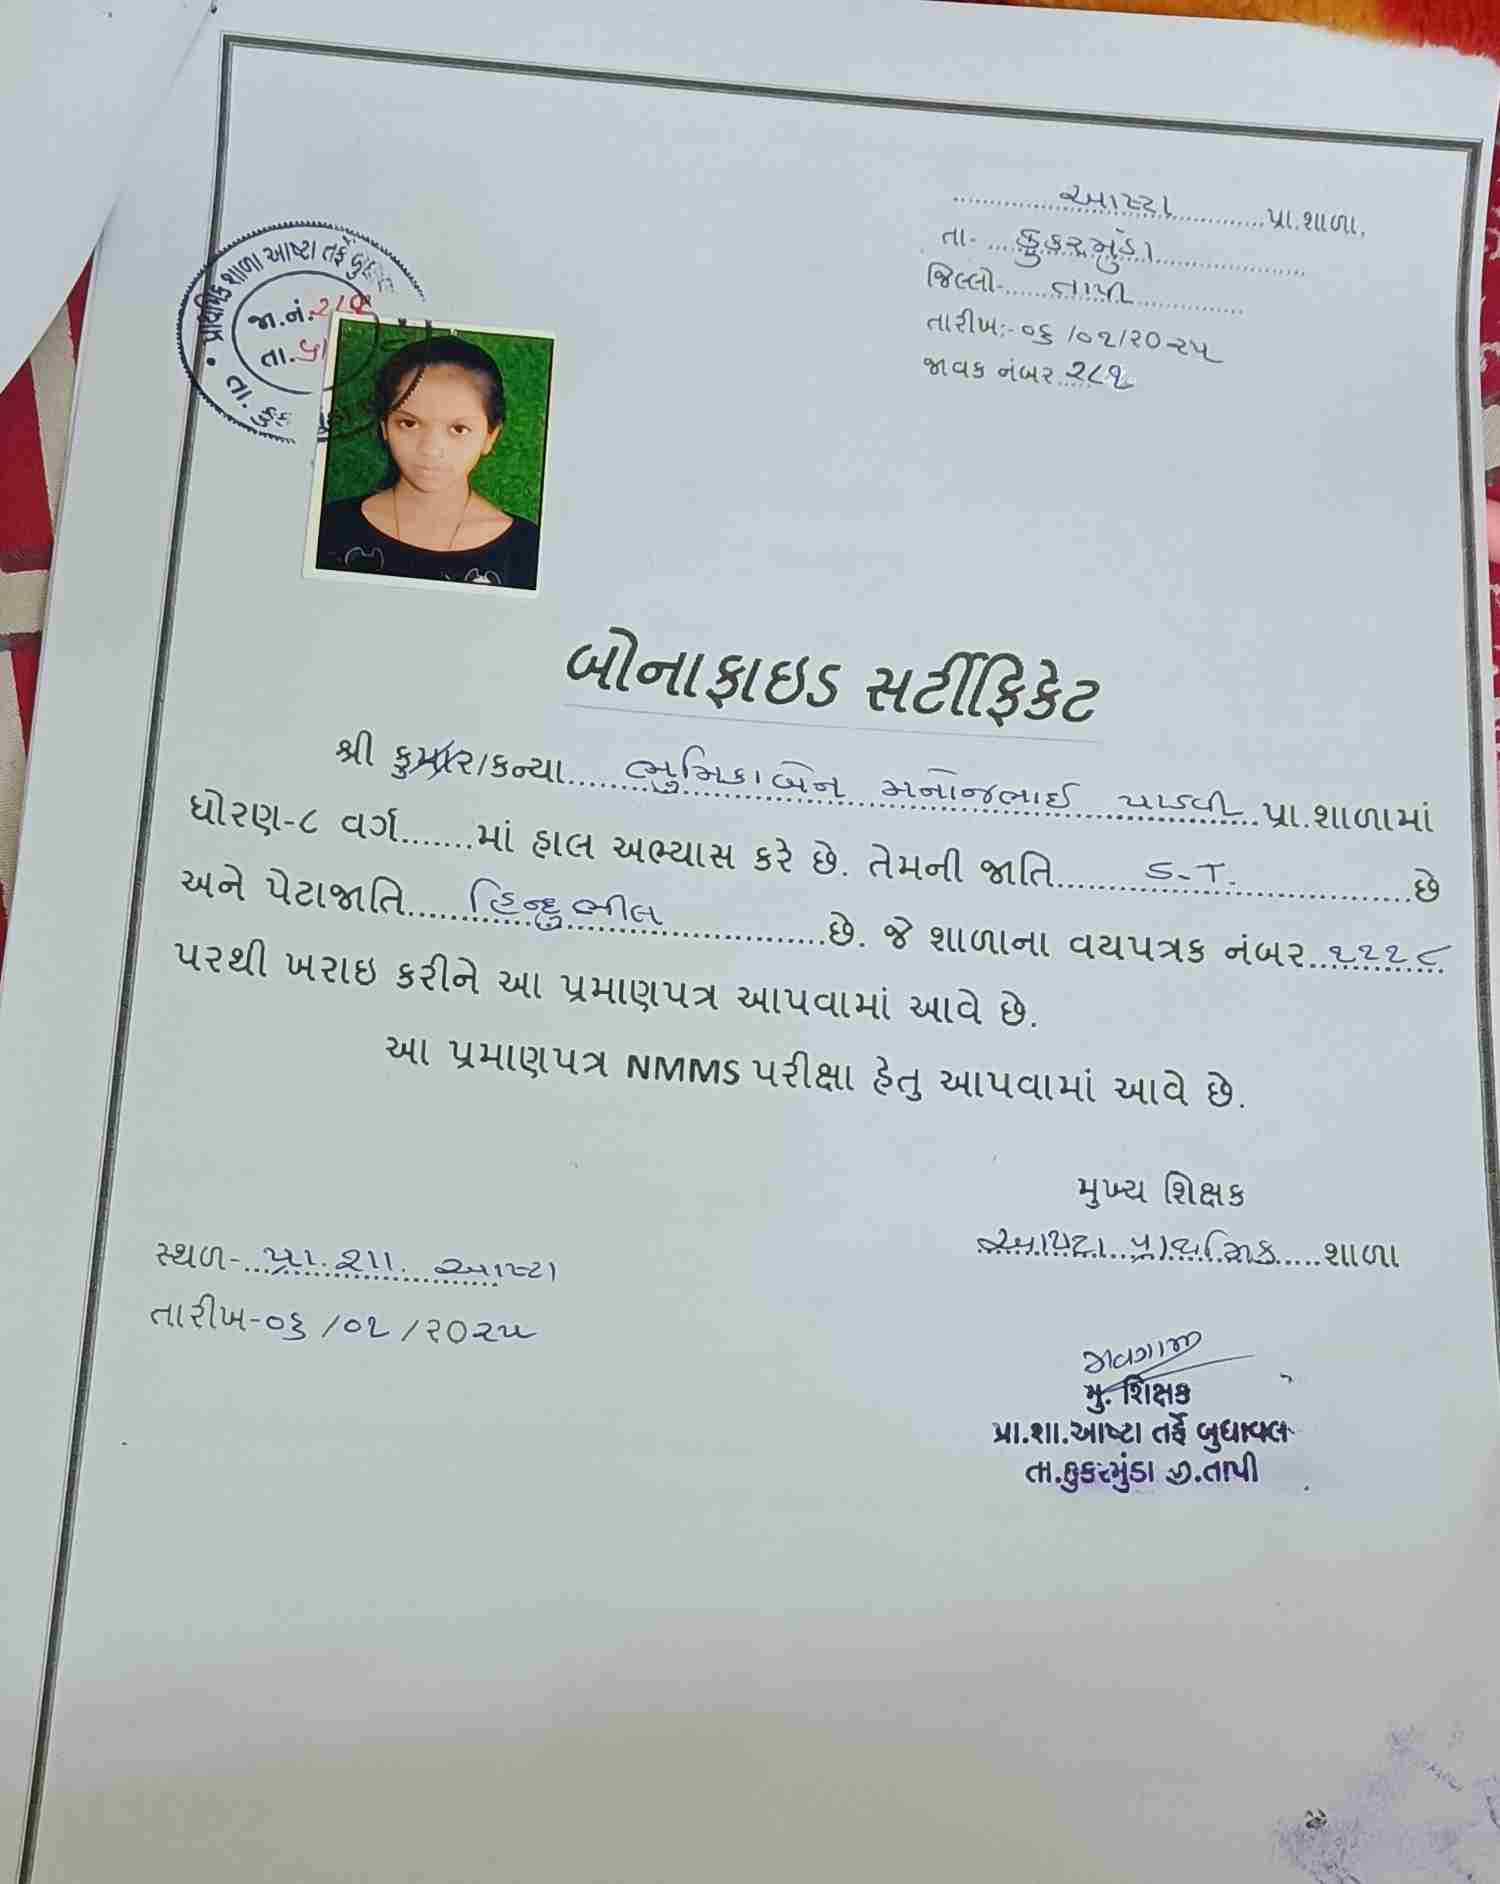 આષ્ટા પ્રા.શાળા.
તા- કુકરમુંડા
જિલ્લો- તાપી
તારીખ:-૦૬/૦૧/૨૦૨૫
જાવક નંબર ૨૮૧
પ્રાથમિક શાળા આષ્ટા તર્ફે
જા.નં.
તા.
બોનાફાઇડ સર્ટીફિકેટ
શ્રી કુમાર/કન્યા ભુમિકાબેન મનોજભાઈ પાડવી પ્રા.શાળામાં
ધોરણ-૮ વર્ગ.......માં હાલ અભ્યાસ કરે છે. તેમની જાતિ S.T. છે
અને પેટાજાતિ હિન્દુભીલ છે. જે શાળાના વયપત્રક નંબર ૧૧૧૮
પરથી ખરાઇ કરીને આ પ્રમાણપત્ર આપવામાં આવે છે.
આ પ્રમાણપત્ર NMMS પરીક્ષા હેતુ આપવામાં આવે છે.
મુખ્ય શિક્ષક
આષ્ટા પ્રાથમિક શાળા
સ્થળ- પ્રા.શા. આષ્ટા
તારીખ-૦૬/૦૧/૨૦૨૫
મુ. શિક્ષક
પ્રા.શા.આષ્ટા તર્ફે બુધાવલ
તા.કુકરમુંડા જી.તાપી